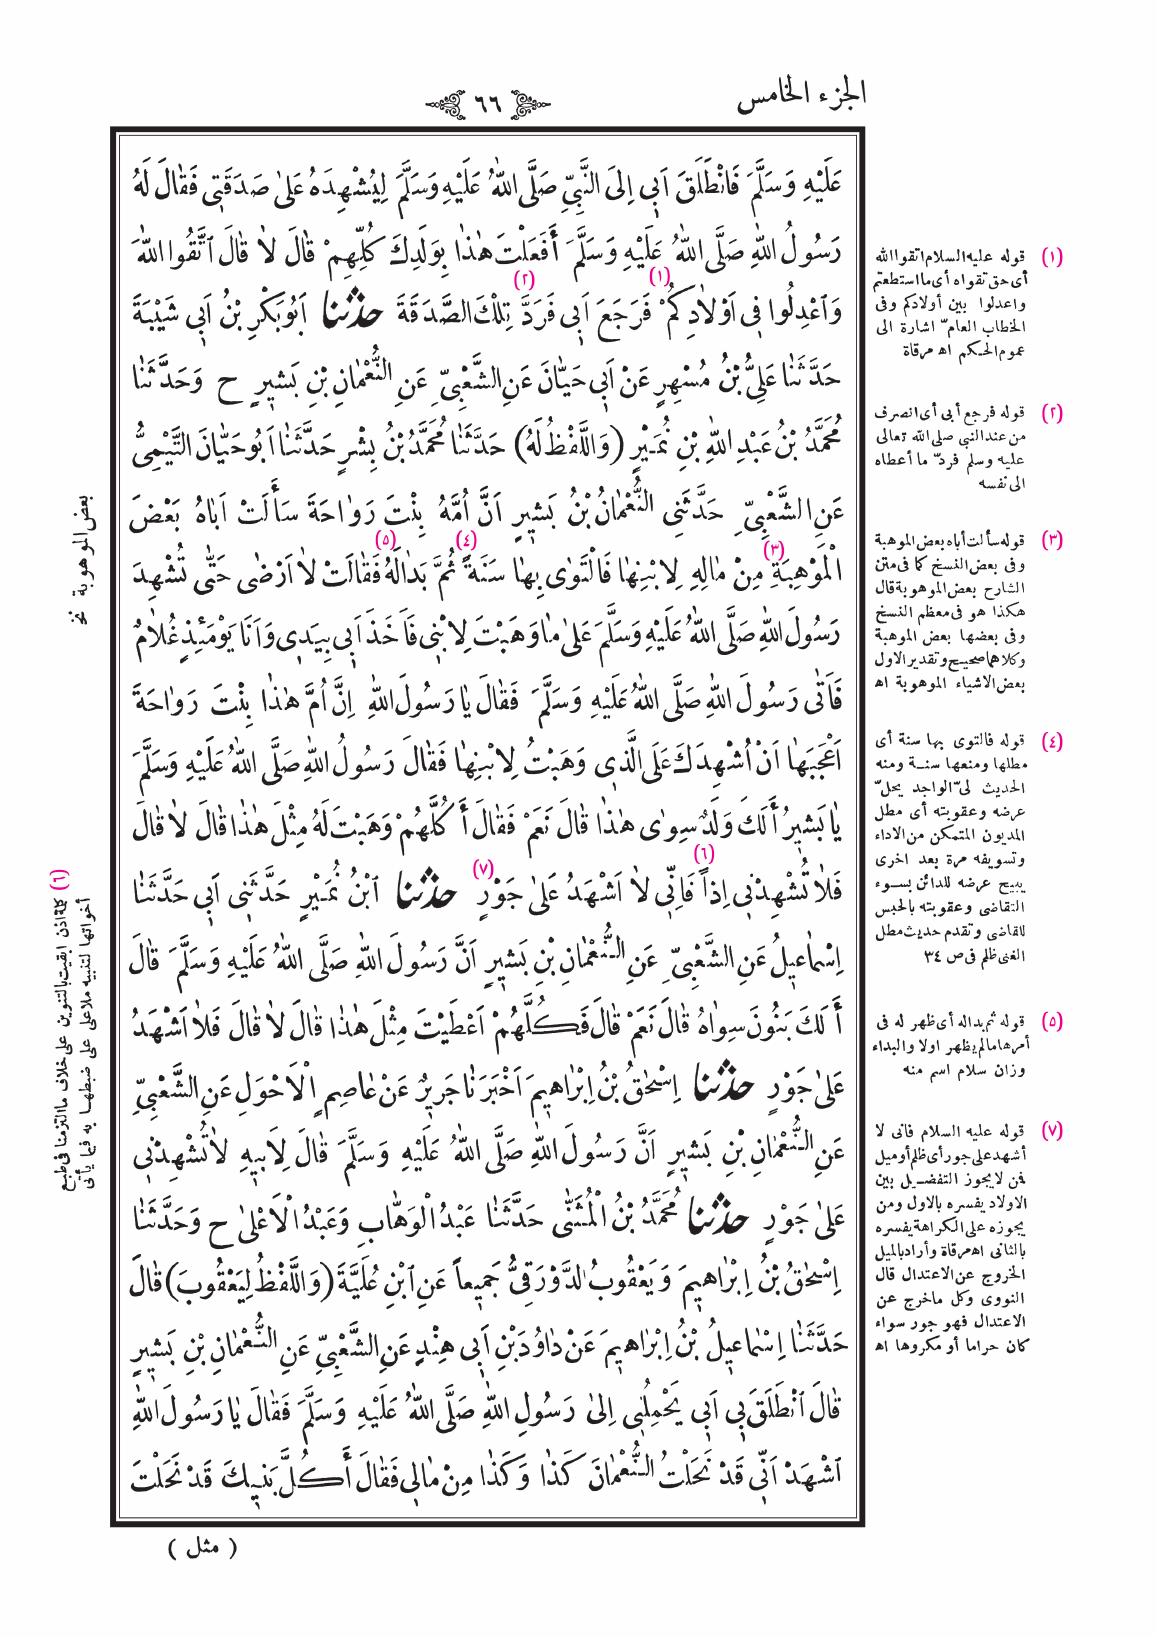 الجزء الخامس
٦٦
عَلَيْهِ وَسَلَّمَ فَانْطَلَقَ اَبِى اِلَى النَّبِىِّ صَلَّى اللّٰهُ عَلَيْهِ وَسَلَّمَ لِيُشْهِدَهُ عَلىٰ صَدَقَتِى فَقٰالَ لَهُ
رَسُولُ اللّٰهِ صَلَّى اللّٰهُ عَلَيْهِ وَسَلَّمَ أَفَعَلْتَ هٰذٰا بِوَلَدِكَ كُلِّهِمْ قٰالَ لاٰ قٰالَ ٱتَّقُوا اللّٰهَ
(١) (٢)
وَٱعْدِلُوا فِى اَوْلاٰدِكُمْ فَرَجَعَ اَبِى فَرَدَّ تِلْكَ الصَّدَقَةَ حدثنا اَبُو بَكْرِ بْنُ اَبِى شَيْبَةَ
حَدَّثَنٰا عَلِىُّ بْنُ مُسْهِرٍ عَنْ اَبِى حَيّٰانَ عَنِ الشَّعْبِىِّ عَنِ النُّعْمٰانِ بْنِ بَشيرٍ ح وَحَدَّثَنٰا
مُحَمَّدُ بْنُ عَبْدِ اللّٰهِ بْنِ نُمَيْرٍ (وَاللَّفْظُ لَهُ) حَدَّثَنٰا مُحَمَّدُ بْنُ بِشْرٍ حَدَّثَنٰا اَبُو حَيّٰانَ التَّيْمِىُّ
عَنِ الشَّعْبِىِّ حَدَّثَنِى النُّعْمٰانُ بْنُ بَشيرٍ اَنَّ اُمَّهُ بِنْتَ رَوٰاحَةَ سَأَلَتْ اَبٰاهُ بَعْضَ
(٣) (٤) (٥)
الْمَوْهِبَةِ مِنْ مٰالِهِ لِابْنِهٰا فَالْتَوٰى بِهٰا سَنَةً ثُمَّ بَدٰا لَهُ فَقٰالَتْ لاٰ اَرْضٰى حَتّٰى تُشْهِدَ
رَسُولَ اللّٰهِ صَلَّى اللّٰهُ عَلَيْهِ وَسَلَّمَ عَلىٰ مٰا وَهَبْتَ لِابْنِى فَاَخَذَ اَبِى بِيَدِى وَاَنَا يَوْمَئِذٍ غُلاٰمٌ
فَاَتٰى رَسُولَ اللّٰهِ صَلَّى اللّٰهُ عَلَيْهِ وَسَلَّمَ فَقٰالَ يٰا رَسُولَ اللّٰهِ اِنَّ اُمَّ هٰذٰا بِنْتَ رَوٰاحَةَ
اَعْجَبَهٰا اَنْ اُشْهِدَكَ عَلَى الَّذِى وَهَبْتُ لِابْنِهٰا فَقٰالَ رَسُولُ اللّٰهِ صَلَّى اللّٰهُ عَلَيْهِ وَسَلَّمَ
يٰا بَشيرُ أَلَكَ وَلَدٌ سِوٰى هٰذٰا قٰالَ نَعَمْ فَقٰالَ أَكُلَّهُمْ وَهَبْتَ لَهُ مِثْلَ هٰذٰا قٰالَ لاٰ قٰالَ
(٦) (٧)
فَلاٰ تُشْهِدْنِى اِذاً فَاِنِّى لاٰ اَشْهَدُ عَلىٰ جَوْرٍ حدثنا ٱبْنُ نُمَيْرٍ حَدَّثَنِى اَبِى حَدَّثَنٰا
اِسْمٰاعيلُ عَنِ الشَّعْبِىِّ عَنِ النُّعْمٰانِ بْنِ بَشيرٍ اَنَّ رَسُولَ اللّٰهِ صَلَّى اللّٰهُ عَلَيْهِ وَسَلَّمَ قٰالَ
أَلَكَ بَنُونَ سِوٰاهُ قٰالَ نَعَمْ قٰالَ فَكُلَّهُمْ اَعْطَيْتَ مِثْلَ هٰذٰا قٰالَ لاٰ قٰالَ فَلاٰ اَشْهَدُ
عَلىٰ جَوْرٍ حدثنا اِسْحٰقُ بْنُ اِبْرٰاهيمَ اَخْبَرَنٰا جَريرٌ عَنْ عٰاصِمٍ الْاَحْوَلِ عَنِ الشَّعْبِىِّ
عَنِ النُّعْمٰانِ بْنِ بَشيرٍ اَنَّ رَسُولَ اللّٰهِ صَلَّى اللّٰهُ عَلَيْهِ وَسَلَّمَ قٰالَ لِاَبيهِ لاٰ تُشْهِدْنِى
عَلىٰ جَوْرٍ حدثنا مُحَمَّدُ بْنُ الْمُثَنّٰى حَدَّثَنٰا عَبْدُ الْوَهّٰابِ وَعَبْدُ الْاَعْلىٰ ح وَحَدَّثَنٰا
اِسْحٰقُ بْنُ اِبْرٰاهيمَ وَيَعْقُوبُ الدَّوْرَقِىُّ جَميعاً عَنِ ٱبْنِ عُلَيَّةَ (وَاللَّفْظُ لِيَعْقُوبَ) قٰالَ
حَدَّثَنٰا اِسْمٰاعيلُ بْنُ اِبْرٰاهيمَ عَنْ دٰاوُدَ بْنِ اَبِى هِنْدٍ عَنِ الشَّعْبِىِّ عَنِ النُّعْمٰانِ بْنِ بَشيرٍ
قٰالَ ٱنْطَلَقَ بِى اَبِى يَحْمِلُنِى اِلىٰ رَسُولِ اللّٰهِ صَلَّى اللّٰهُ عَلَيْهِ وَسَلَّمَ فَقٰالَ يٰا رَسُولَ اللّٰهِ
اَشْهَدْ اَنِّى قَدْ نَحَلْتُ النُّعْمٰانَ كَذٰا وَكَذٰا مِنْ مٰالِى فَقٰالَ أَكُلَّ بَنيكَ قَدْ نَحَلْتَ
( مثل )
(١) قوله عليه السلام اتقوا الله
أى حق تقواه أى ما استطعتم
واعدلوا بين أولادكم وفى
الخطاب العامّ اشارة الى
عموم الحكم اه مرقاة
(٢) قوله فرجع أبى أى انصرف
من عند النبى صلى الله تعالى
عليه وسلم فردّ ما أعطاه
الى نفسه
(٣) قوله سألت أباه بعض الموهبة
وفى بعض النسخ كما فى متن
الشارح بعض الموهوبة قال
هكذا هو فى معظم النسخ
وفى بعضها بعض الموهبة
وكلاهما صحيح وتقدير الاول
بعض الاشياء الموهوبة اه
(٤) قوله فالتوى بها سنة أى
مطلها ومنعها سنة ومنه
الحديث لىّ الواجد يحلّ
عرضه وعقوبته أى مطل
المديون المتمكن من الاداء
وتسويفه مرة بعد اخرى
يبيح عرضه للدائن بسوء
التقاضى وعقوبته بالحبس
للقاضى وتقدم حديث مطل
الغنى ظلم فى ص ٣٤
(٥) قوله ثم بدا له أى ظهر له فى
أمرها مالم يظهر اولا والبداء
وزان سلام اسم منه
(٧) قوله عليه السلام فانى لا
أشهد على جور أى ظلم أو ميل
فمن لا يجوز التفضيل بين
الاولاد يفسره بالاول ومن
يجوزه على الكراهة يفسره
بالثانى اه مرقاة وأراد بالميل
الخروج عن الاعتدال قال
النووى وكل ماخرج عن
الاعتدال فهو جور سواء
كان حراما أو مكروها اه
بعض الموهوبة نخ
(٦) كلمة اذن ابقيت بالتنوين على خلاف ما التزمنا فى طبع
أخواتها لتنبيه ملا على على ضبطها به فيما يأتى